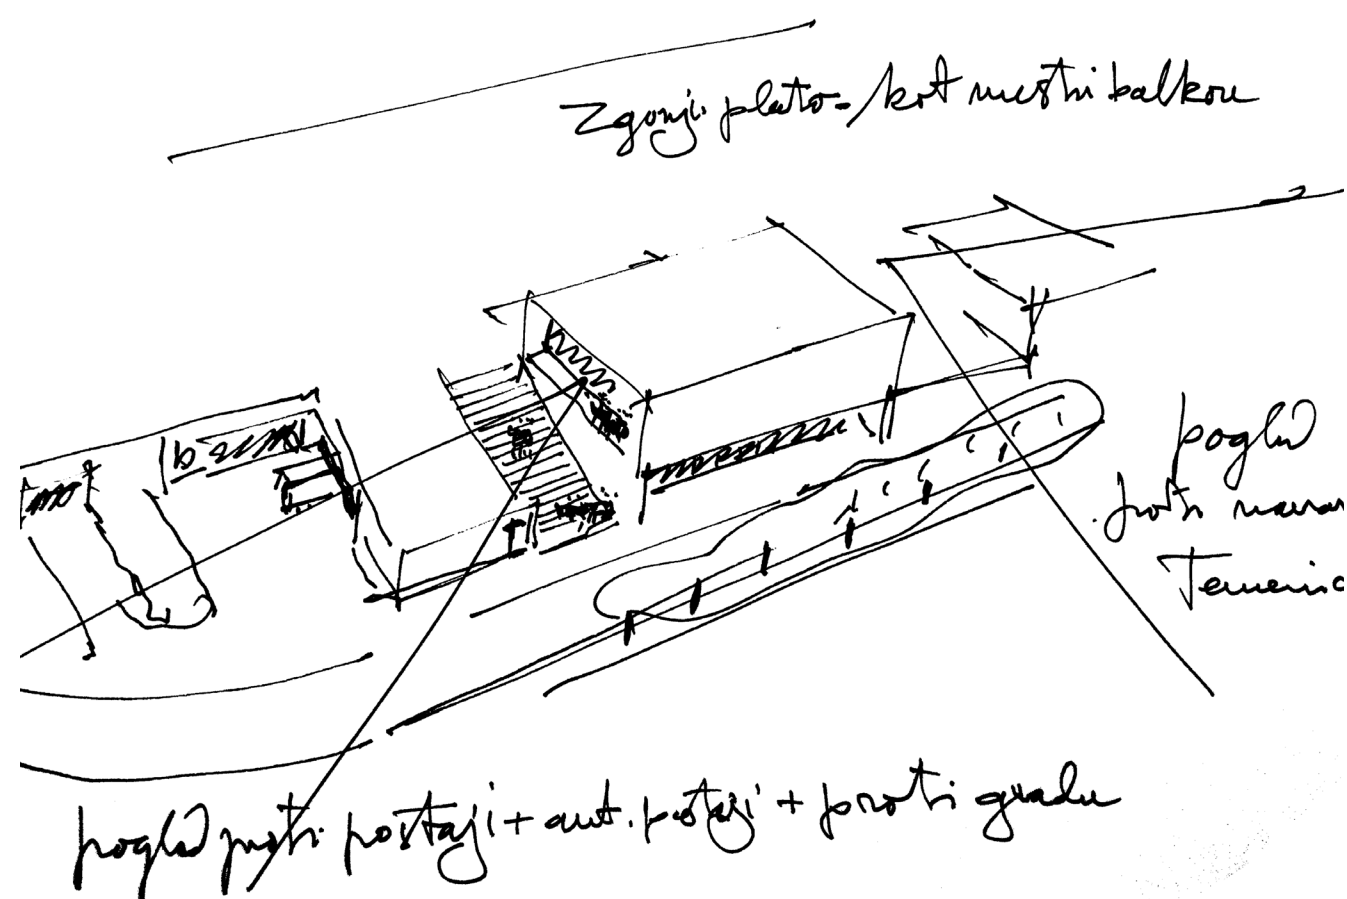 Zgornji plato - kot mestni balkon
pogled
proti
pogled proti postaji + avt. postaji + proti gradu